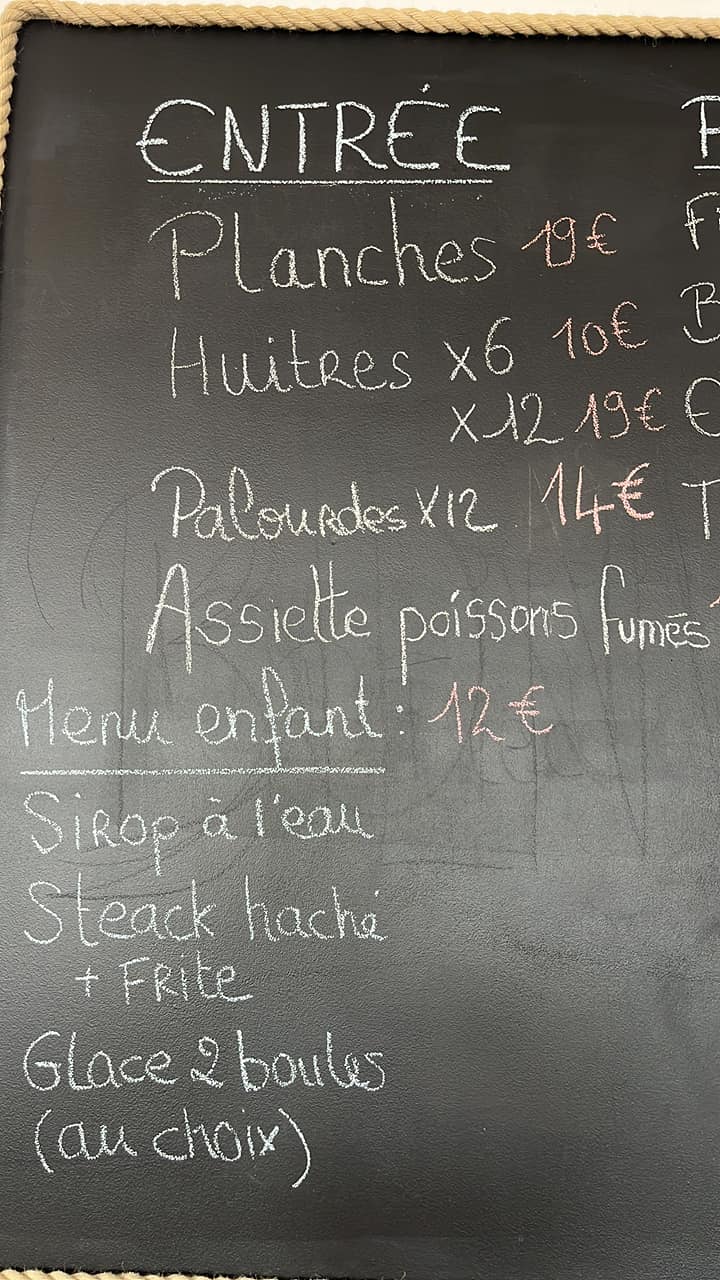 ENTRÉE
Planches 19€
Huitres x6 10€
x12 19€
Palourdes x12 14€
Assiette poissons fumés
Menu enfant : 12€
Sirop à l'eau
Steack haché
+ Frite
Glace 2 boules
(au choix)